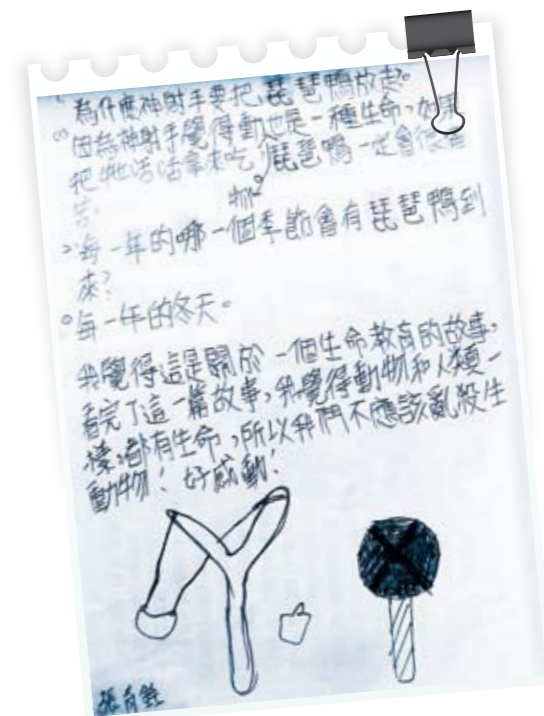 為什麼神射手要把琵琶鴨放走。
因為神射手覺得動也是一種生命,如果
把牠活活拿來吃,琵琶鴨一定會很
物
2.每一年的哪一個季節會有琵琶鴨到
來?
每一年的冬天。
我覺得這是關於一個生命教育的故事,
看完了這一篇故事,我覺得動物和人類一
樣,都有生命,所以我們不應該亂殺生
動物!好感動!